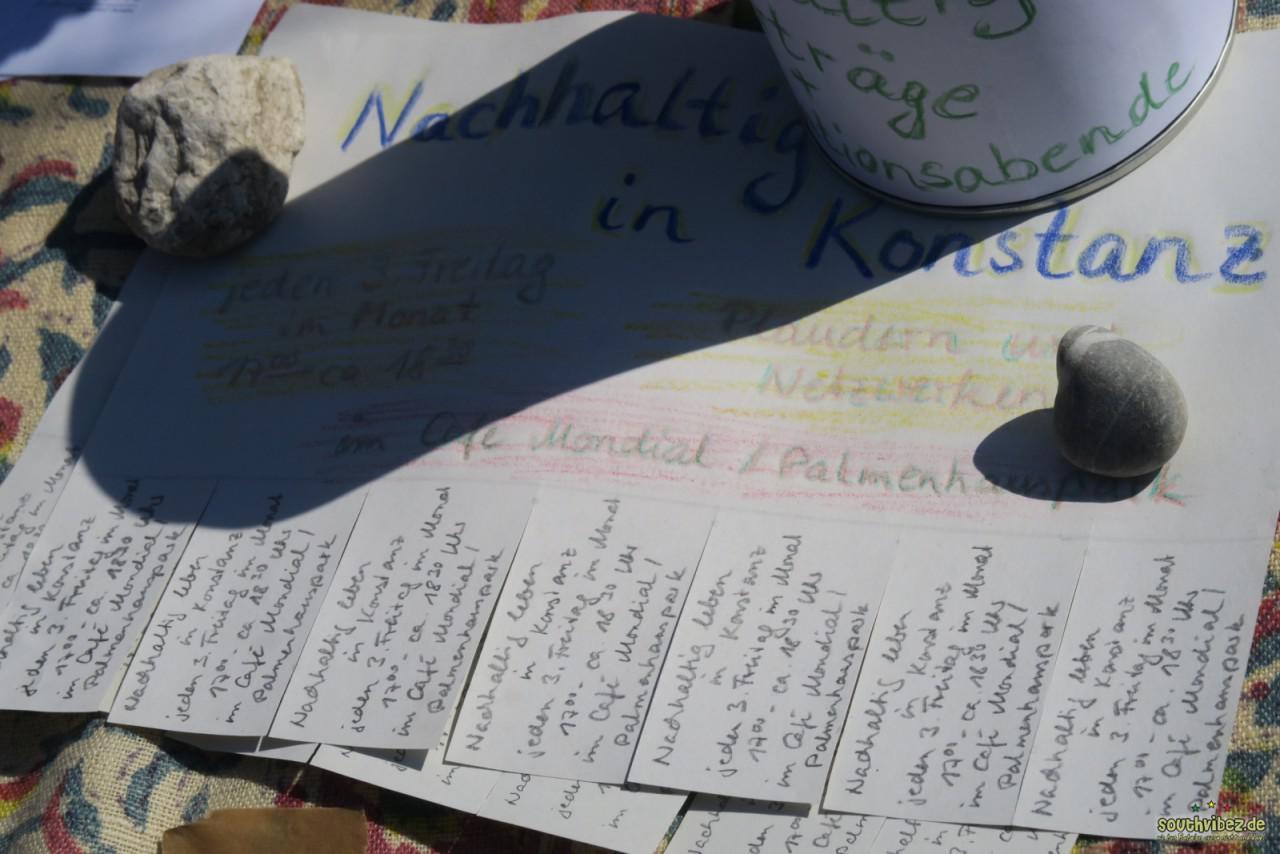 träge
ionsabende
Nachhaltig
in Konstanz
jeden 3. Freitag
im Monat
17 00 ca 18 30
Plaudern
Netzwerken
im Café Mondial / Palmenhauspark
jeden 3. Freitag im Monat
1700 - ca. 1830 Uhr
im Café Mondial /
Palmenhauspark
Nachhaltig leben
in Konstanz
jeden 3. Freitag im Monat
1700 - ca. 1830 Uhr
im Café Mondial /
Palmenhauspark
Nachhaltig leben
in Konstanz
jeden 3. Freitag im Monat
1700 - ca. 1830 Uhr
im Café Mondial /
Palmenhauspark
Nachhaltig leben
in Konstanz
jeden 3. Freitag im Monat
1700 - ca. 1830 Uhr
im Café Mondial /
Palmenhauspark
Nachhaltig leben
in Konstanz
jeden 3. Freitag im Monat
1700 - ca. 1830 Uhr
im Café Mondial /
Palmenhauspark
Nachhaltig leben
in Konstanz
jeden 3. Freitag im Monat
1700 - ca. 1830 Uhr
im Café Mondial /
Palmenhauspark
Nachhaltig leben
in Konstanz
jeden 3. Freitag im Monat
1700 - ca. 1830 Uhr
im Café Mondial /
Palmenhauspark
southvibez.de